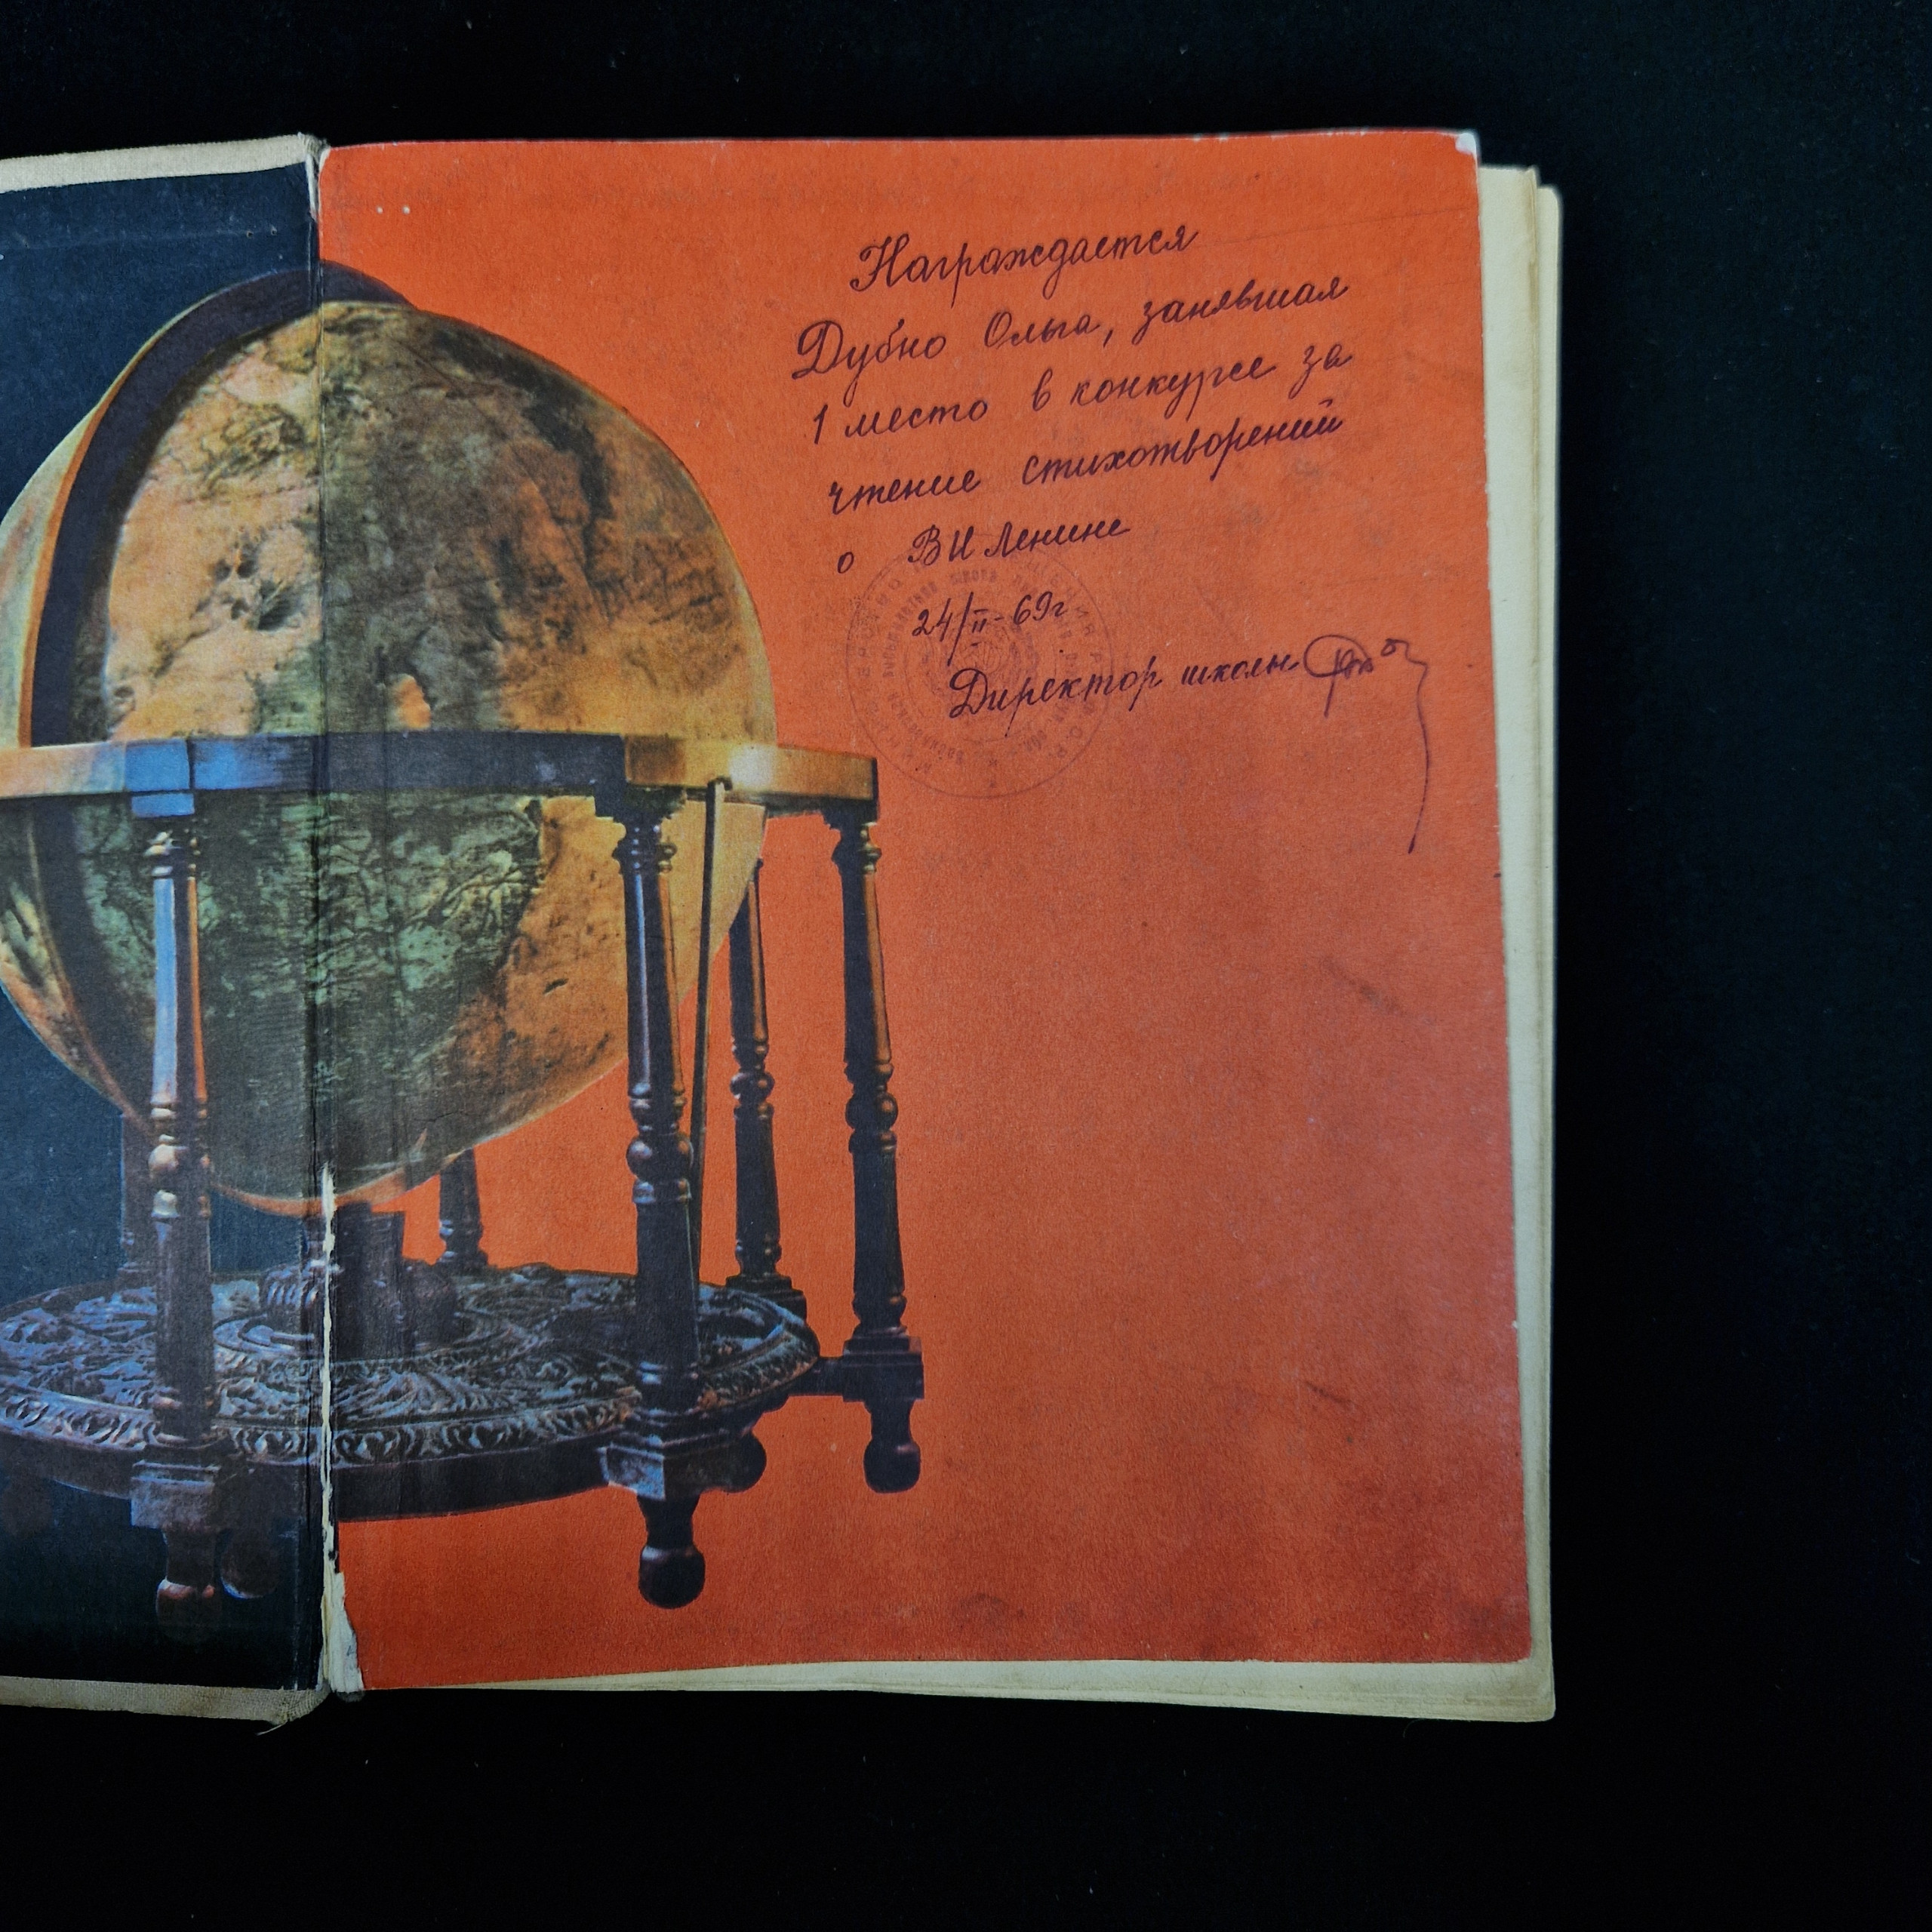 Награждается
Дубно Ольга, занявшая
1 место в конкурсе за
чтение стихотворений
о В И Ленине
24/II-69г
Директор школы